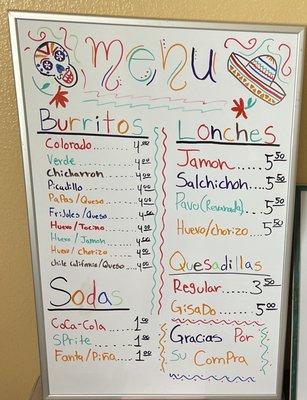 Menu
Burritos
Colorado......... 4.00
Verde............ 4.00
Chicharron....... 4.00
Picadillo........ 4.00
Papas/Queso...... 4.00
Frijoles/Queso... 4.00
Huevo/Tocino..... 4.00
Huevo/Jamon...... 4.00
Huevo/Chorizo.... 4.00
Chile California/Queso... 4.00
Sodas
Coca-Cola........ 1.00
Sprite........... 1.00
Fanta/Piña....... 1.00
Lonches
Jamon........ 5.50
Salchichon... 5.50
Pavo... 5.50
Huevo/Chorizo... 5.50
Quesadillas
Regular..... 3.50
Gisado...... 5.00
Gracias Por
Su Compra